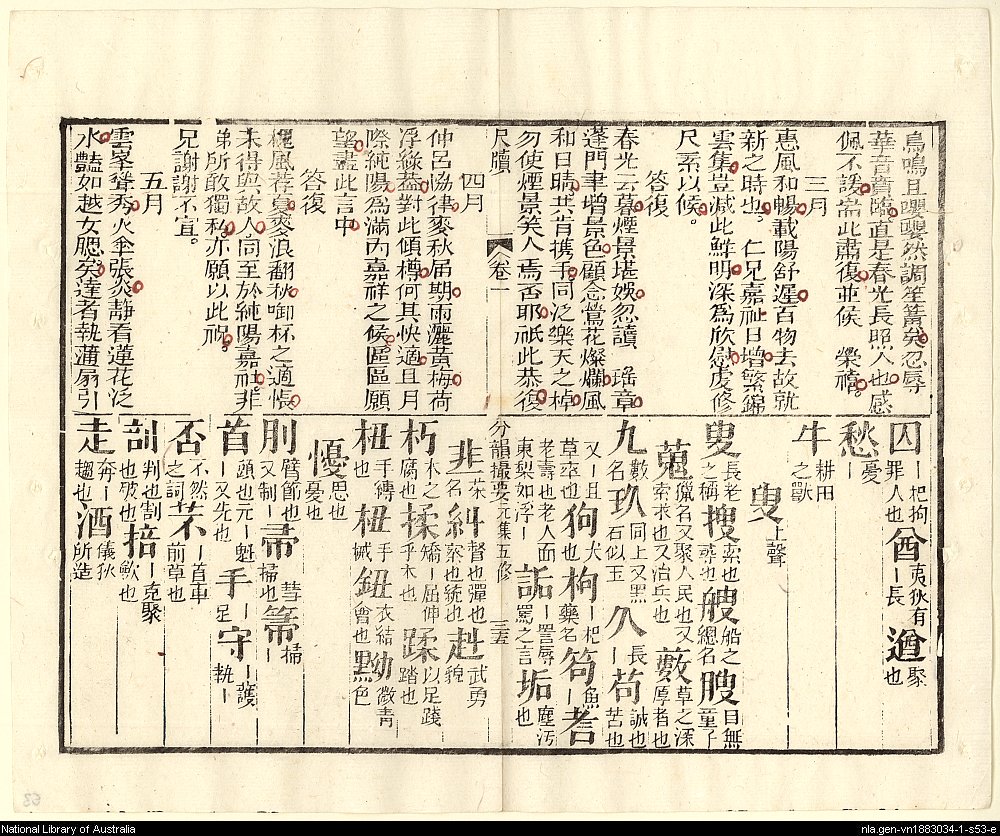 鳥鳴且嚶嚶然調笙簧矣忍辱
華音賁臨直是春光長照人也感
佩不諼耑此肅復並候　榮禧
三月
惠風和暢載陽舒遲百物去故就
新之時也　仁兄嘉祉日增繁錦
雲集豈減此鮮明深為欣慰虔修
尺素以候
答復
春光云暮煙景堪娛忽讀　瑤章
蓬門聿增景色顧念鶯花燦爛風
和日晴共肯携手同泛樂天之棹
勿使煙景笑人焉否耶祇此恭復
尺牘　卷一
四月
仲呂協律麥秋屆期雨灑黃梅荷
浮綠蓋對此傾樽何其快適且月
際純陽為滿內嘉祥之候區區願
望盡此言中
答復
槐風荐夏麥浪翻秋啣杯之適恨
未得與故人同至於純陽嘉祉非
弟所敢獨私亦願以此祝
兄謝謝不宣
五月
雲峯聳秀火傘張炎静看蓮花泛
水豔如越女腮矣達者執蒲扇引
囚｜杞拘罪人也酋夷狄有｜長遒聚也
愁｜憂
牛耕田之獸
叟上聲
叟長老之稱搜索也尋也艘船之總名瞍目無童子
蒐獵名又聚人民也又索求也又治兵也藪草之深厚者也
九數名玖同上又黑石似玉久｜長苟誠也苦也
又｜且草率也狗犬也枸｜杞藥名笱魚｜耇
老壽也老人面東梨如浮｜詬｜詈辱罵之言垢塵污也
分韻撮要元集五修　三五
韭｜菜名糾督也彈也察也統也赳武勇貌
朽木之腐也揉矯｜屈伸乎木也蹂以足踐踏也
杻手轉也杻手械鈕衣結會也黝微青黑色
懮思也憂也
肘臂節也又制｜帚彗掃也箒掃｜
首頭也元｜魁｜又先也手｜足守｜護執｜
否不然之詞芣｜苢車前草也
剖判也割也破也掊｜克聚歛也
走奔｜趨也酒儀狄所造
National Library of Australia
nla.gen-vn1883034-1-s53-e